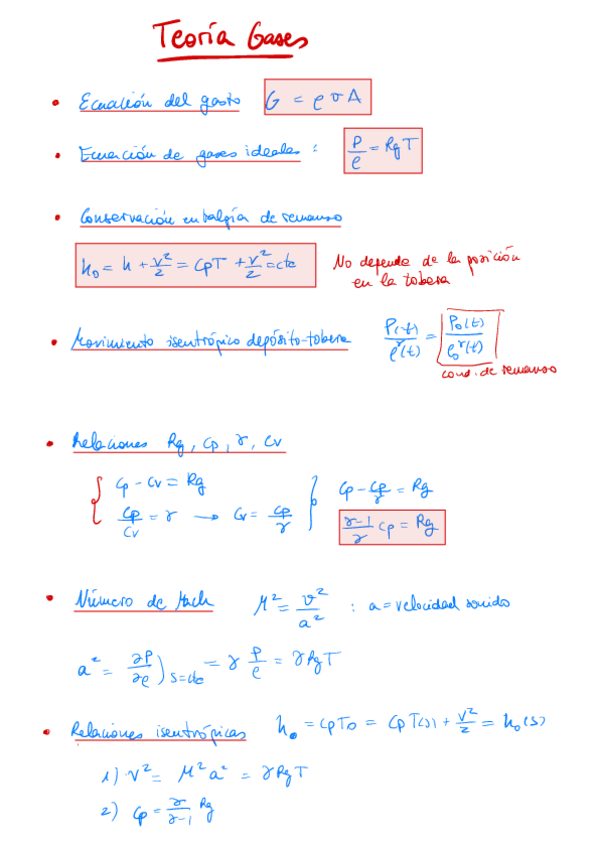 Teoría Gases
• Ecuación del gasto G = ρ v A
• Ecuación de gases ideales : P/ρ = Rg T
• Conservación entalpía de remanso
h₀ = h + v²/2 = CpT + v²/2 = cte No depende de la posición en la tobera
• Movimiento isentrópico depósito-tobera P(t)/ρ^γ(t) = P₀(t)/ρ₀^γ(t)
cond. de remanso
• Relaciones Rg, Cp, γ, Cv
{ Cp - Cv = Rg } Cp - Cp/γ = Rg
Cp/Cv = γ → Cv = Cp/γ (γ-1)/γ Cp = Rg
• Número de Mach M² = v²/a² : a = velocidad sonido
a² = ∂P/∂ρ)s=cte = γ P/ρ = γ Rg T
• Relaciones isentrópicas h₀ = CpT₀ = CpT(s) + v²/2 = h₀(s)
1) v² = M² a² = γ Rg T
2) Cp = γ/(γ-1) Rg